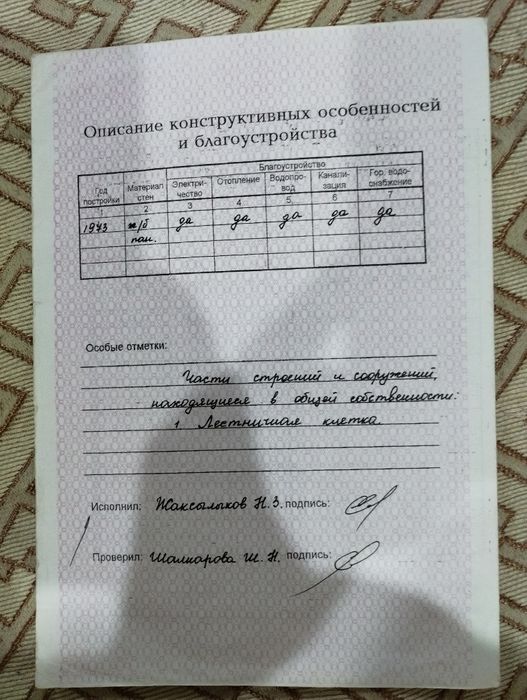 Описание конструктивных особенностей
и благоустройства
Год постройки | Материал стен | Благоустройство
Электри-чество | Отопление | Водопро-вод | Канали-зация | Гор. водо-снабжение
1 2 3 4 5 6 7
1973 ж/б пан. да да да да да
Особые отметки:
Части строений и сооружений,
находящиеся в общей собственности:
1 Лестничная клетка.
Исполнил: Жаксылыков Н.З. подпись:
Проверил: Шалкарова Ш.Н. подпись: